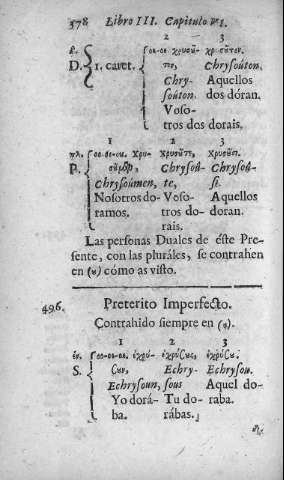 378 Libro III. Capitulo VI.
2 3
D. 1. caret. οε-ου χρυσῦ- χρυσῦτον.
τον, Chrysoúton.
Chry- Aquellos
soúton. dos dóran.
Voso-
tros dos dorais.
1 2 3
πλ. χρυ- χρυσῦτε, χρυσῦσι.
P. σῦμεν, Chrysoû- Chrysoû-
Chrysoúmen, te, si.
Nosotros do- Voso- Aquellos
ramos. tros do- doran.
rais.
Las personas Duales de éste Pre-
sente, con las pluráles, se contrahen
en (ȣ) cómo as visto.
496. Preterito Imperfecto.
Contrahido siempre en (ȣ).
1 2 3
ἑν. ἐχρύ- ἐχρύσȣς, ἐχρύσȣ.
S. σȣν, Echry- Echrysou.
Echrysoun, sous Aquel do-
Yo dorá- Tu do- raba.
ba. rábas.